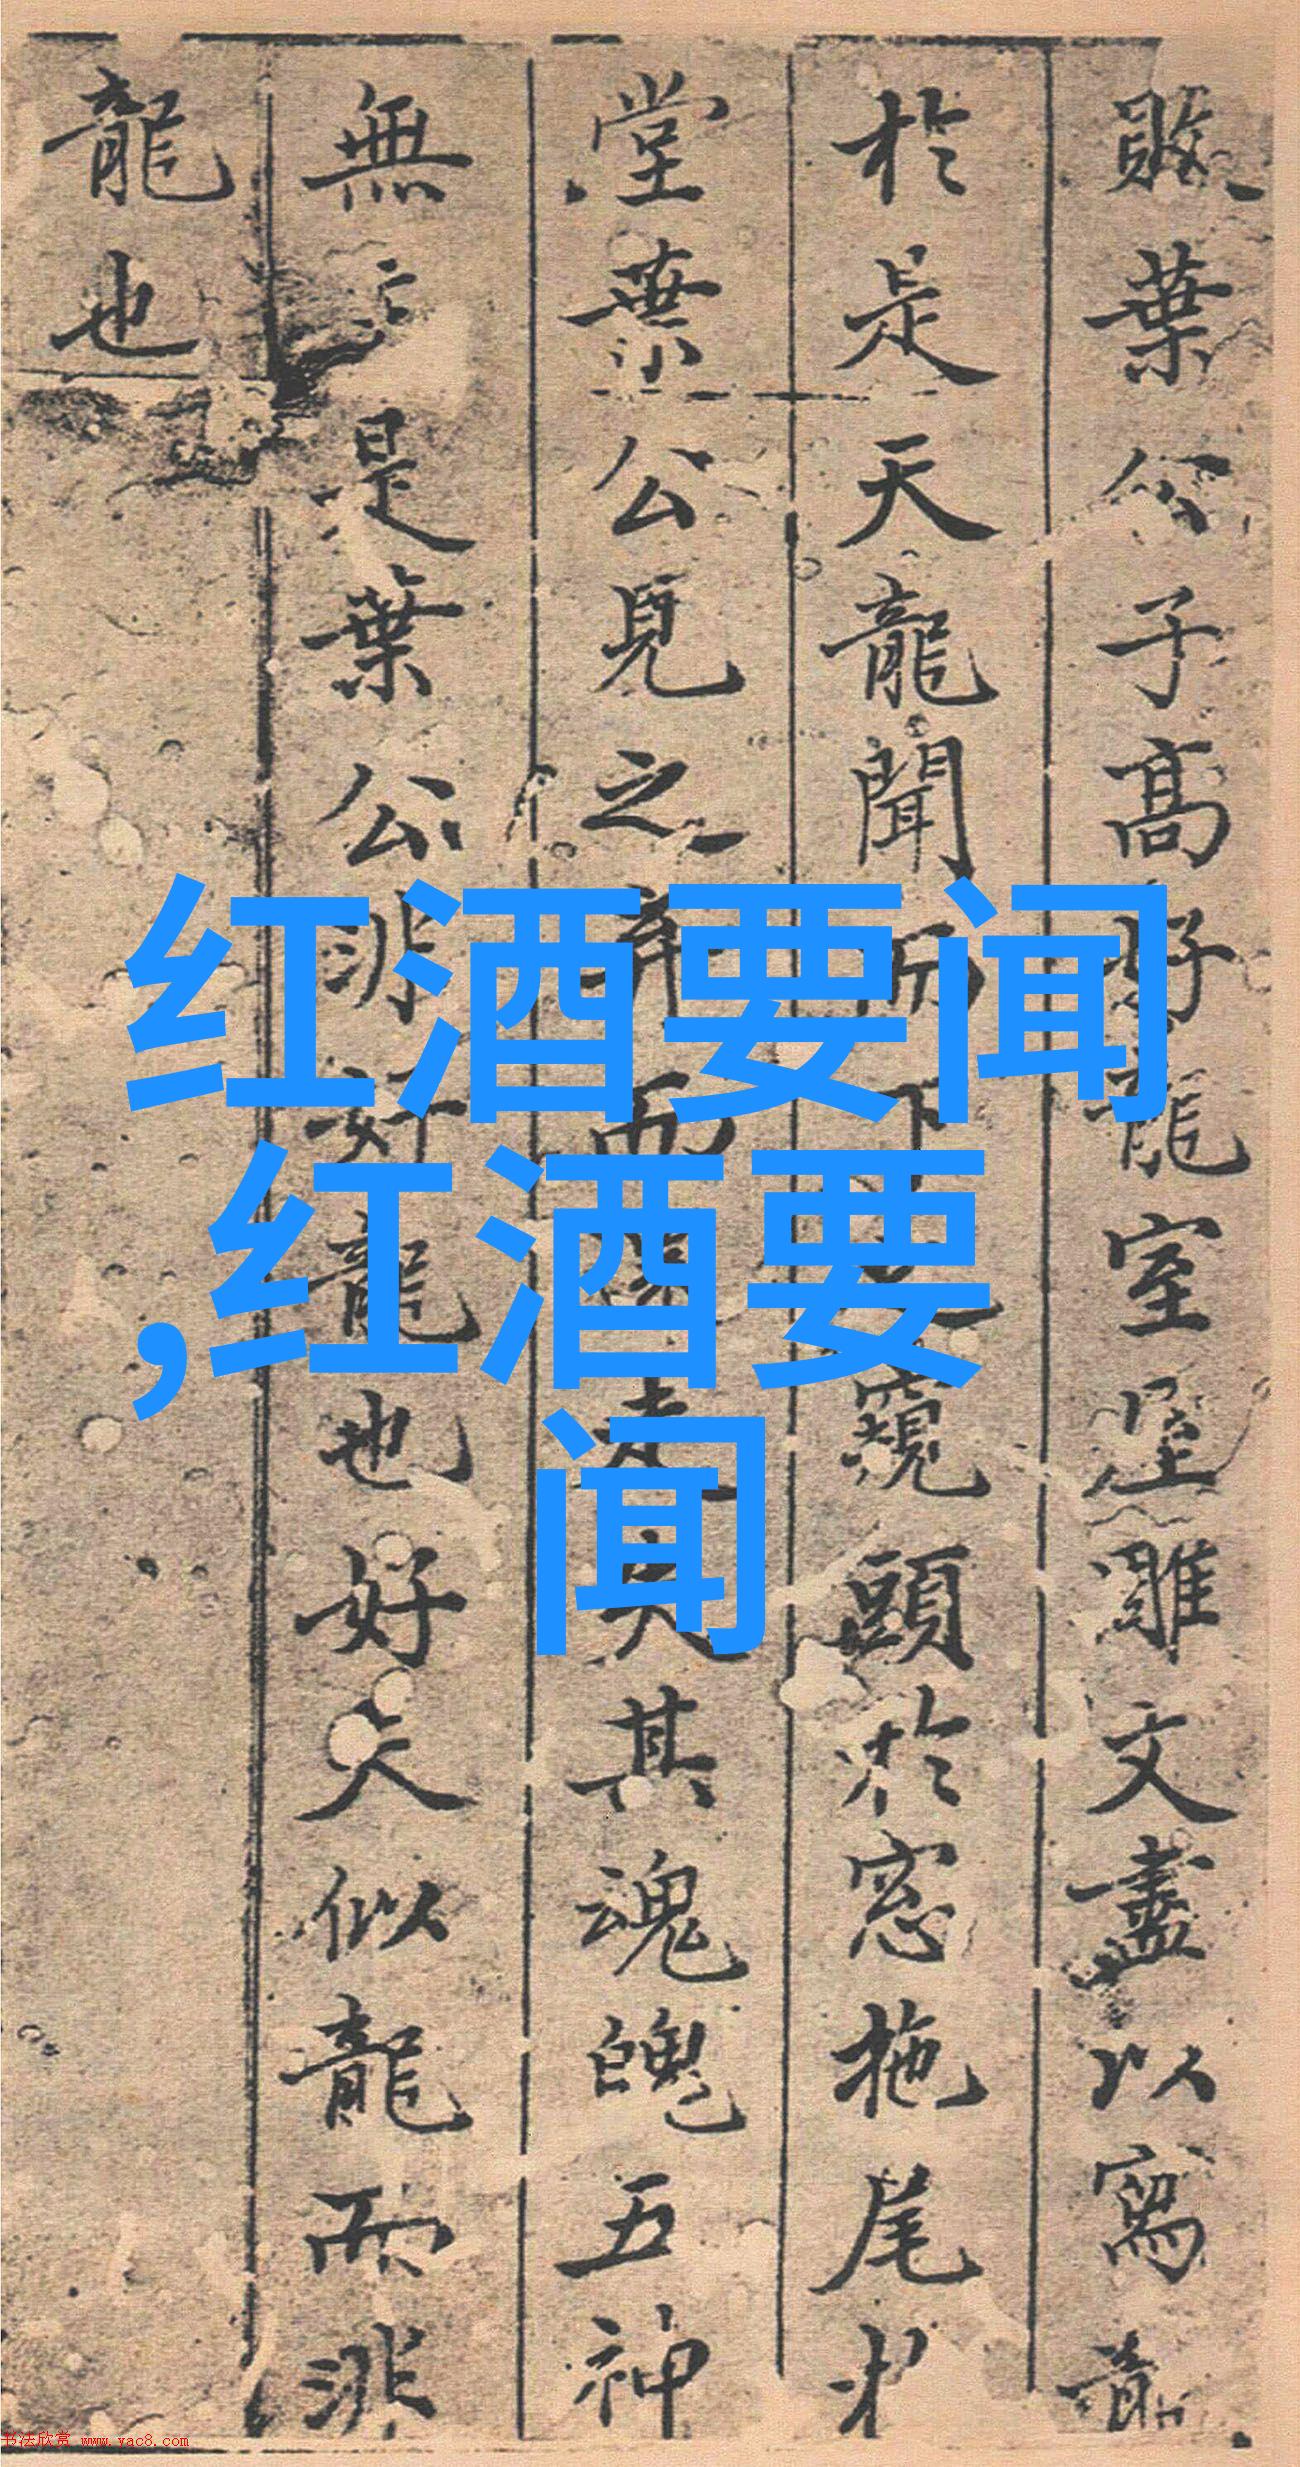 葉公子高好龍室屋雕文盡以寫龍
於是天龍聞而下之窺頭於窓拖尾於
堂葉公見之弃而還走失其魂魄五神
無主是葉公非好龍也好夫似龍而非
龍也
红酒要闻
,红酒要
闻
书法欣赏 www.yac8.com